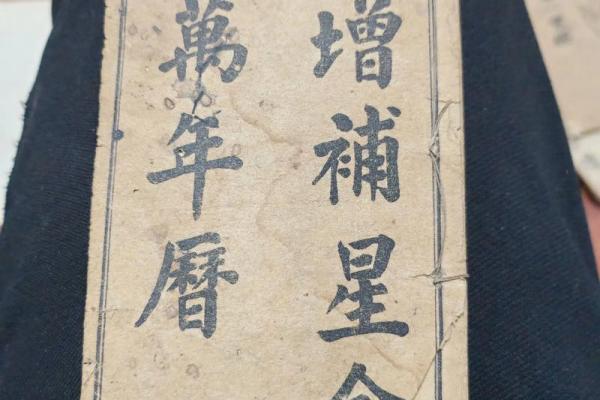 增補星命
萬年曆